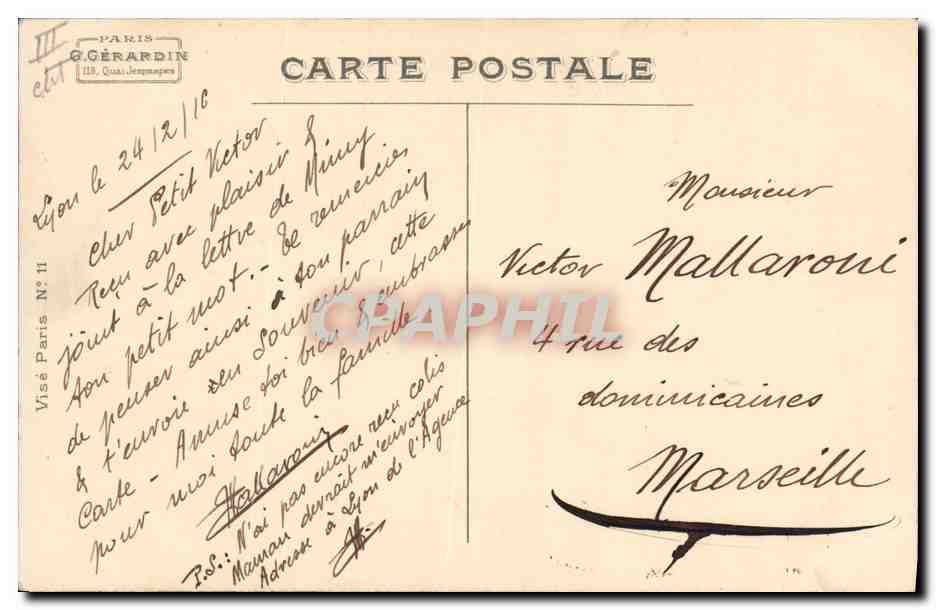 PARIS
G. GÉRARDIN
118, Quai Jemmapes
CARTE POSTALE
Visé Paris N° 11
III
Lyon le 24/2/16
Cher Petit Victor
Reçu avec plaisir &
joint à la lettre de Mimy
ton petit mot. - Te remercies
de penser ainsi à ton parrain
& t'envoie en Souvenir, cette
Carte - Amuse toi bien & embrasses
pour moi toute la famille.
Mallaroni
P.S.: N'ai pas encore reçu colis
Maman devrait m'envoyer
Adresse à Lyon de l'Agence
Monsieur
Victor Mallaroni
4 rue des
dominicaines
Marseille
CPAPHIL